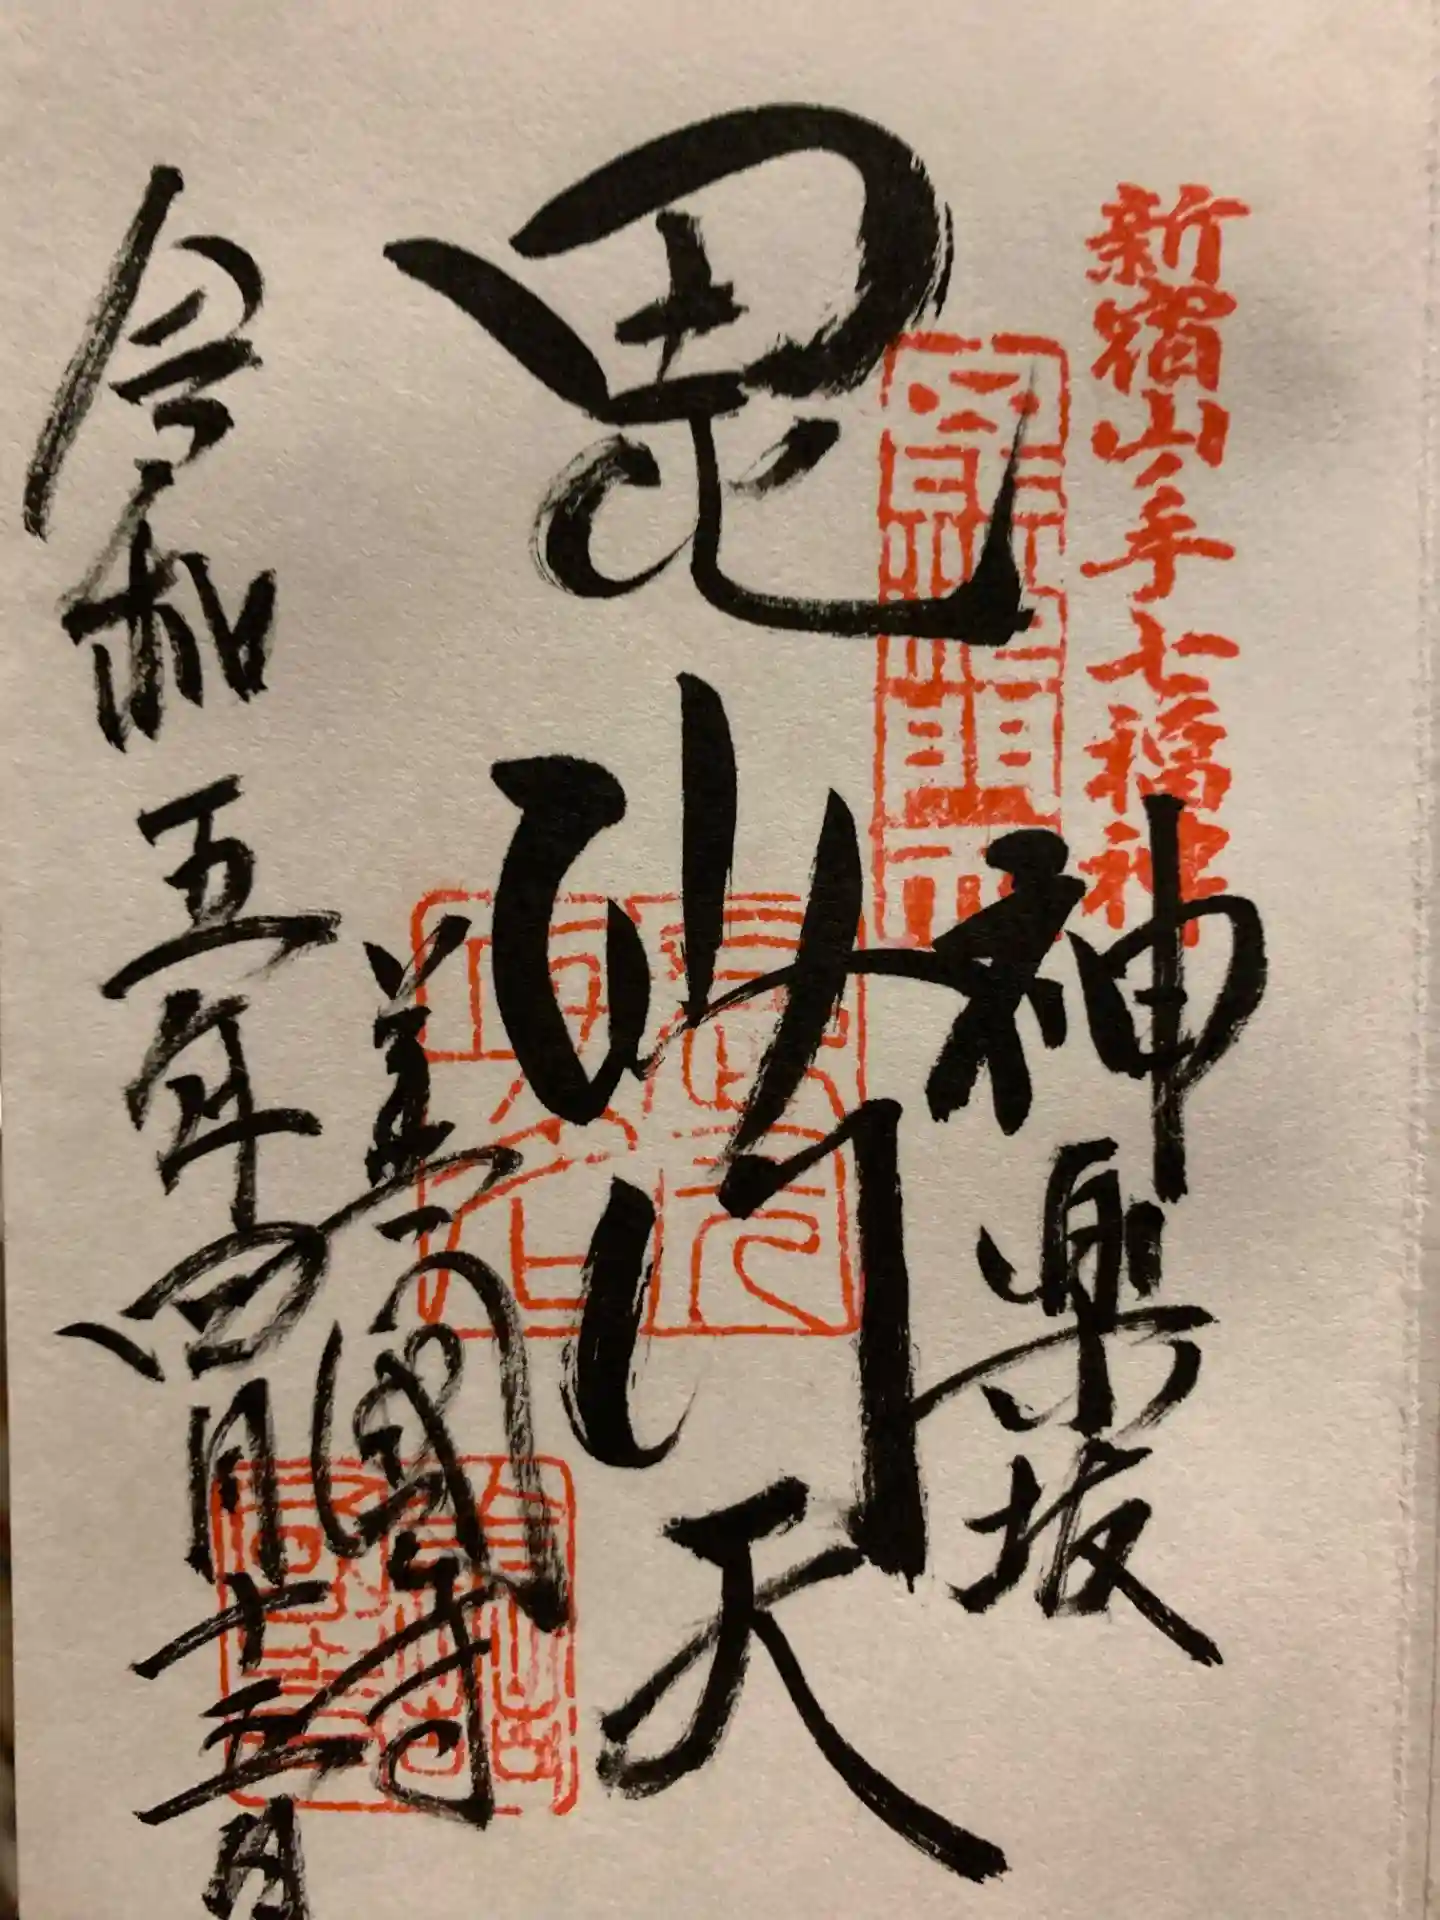 新宿山ノ手七福神
神楽坂
毘沙門天
善國寺
令和五年四月十五日